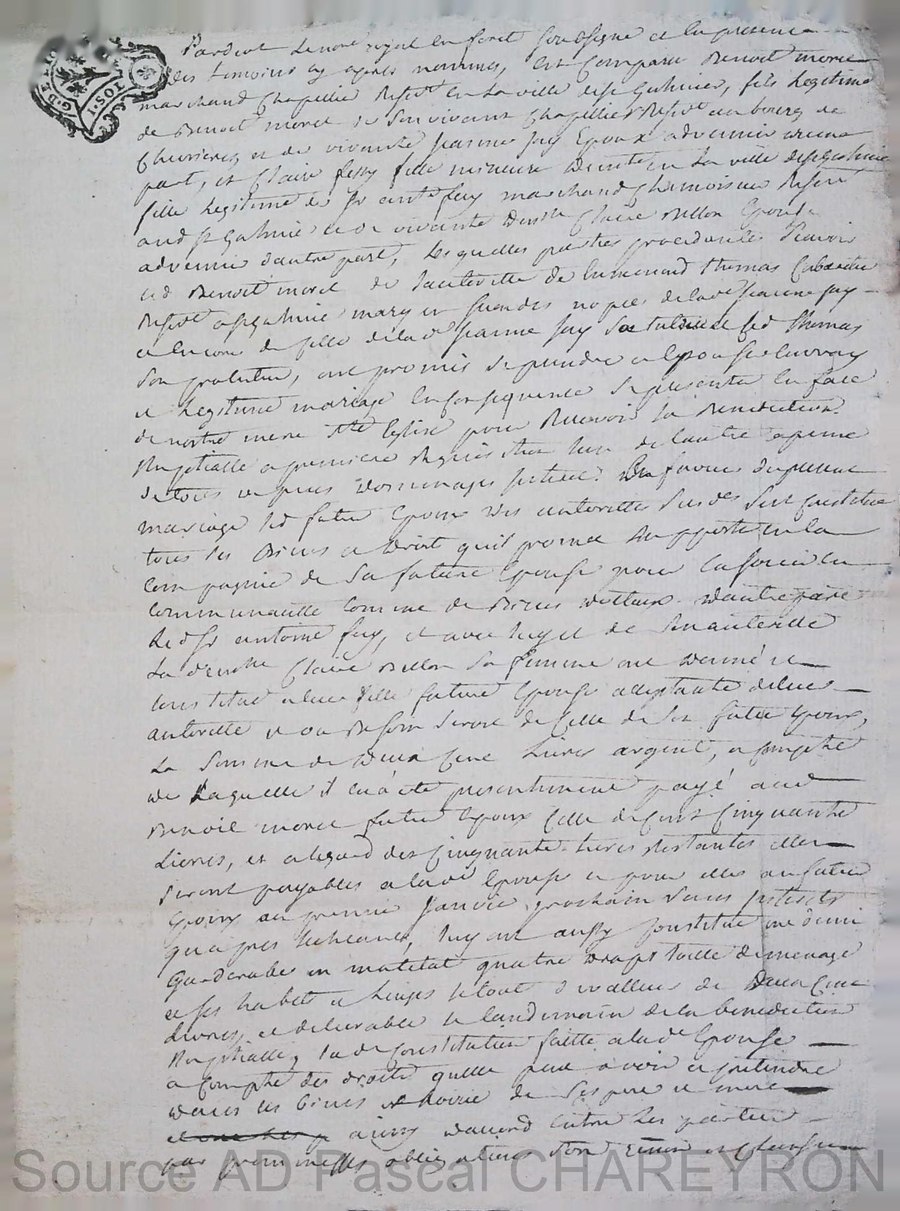 Pardevt Le notre royal en forest soubsigne et en presence
des temoins cy apres nommes, est comparu Benoit morel
marchand chapellie Residt en la ville de st Galmier, fils Legitime
de Benoit morel de son vivant chapellier Residt au bourg de
Chevrieres et de vivante jeanne fay Epoux advenir dune
part, et Claire fessy fille mineure en la ville de st Galmie
fille Legitime de Sr ant fay marchand chamoiseur Resident
aud st Galmie et de vivante Claire Billon Epouse
advenir dautre part, Lesquelles parties procedantes scavoir
led Benoit morel de lautorité de thomas Cabaretie
Residt a st Galmie mary en secondes nopces de lade jeanne fay
et encore de celle de lade jeanne fay sa tutrice led thomas
son protuteur, ont promis se prendre et Epouse en vray
et Legitime mariage en consequence se presenter en face
de nostre mere Ste Eglise pour Recevoir la Benediction
Nuptialle a premiere Requisition lun de lautre a peine
de tous depens dommages interets En faveur du present
mariage led futur Epoux des autorittés susdes sest constitué
tous ses Biens et droits quil promet apporter en la
compagnie de sa future Epouse pour
communauté comme de Biens dottaux. dautre part
Led Sr antoine fay, et avec luy et de son autoritté
La Claire Billon sa femme ont donné et
constitué a leur fille future Epouse acceptante de leur
autoritté et ou Besoin seroit de celle de son futur Epoux,
La somme de deux cent Livres argent, a compte
de Laquelle il en a été presentement payé aud
Benoit morel futur Epoux celle de cent cinquante
Livres, et a legard des cinquante livres restantes elles
seront payables a lade Epouse et pour elle au futur
Epoux au premier janvier prochain sans interets
qu'apres lecheance, luy ont aussy constitué une demi
Garderobe un matelat quatre draps toille de menage
et ses habits et Linges le tout de valleur de deux cent
Livres, et delivrable le landemain de la benediction
Nuptialle, lade constitution faitte a lade Epouse
a compte des droits quelle peut avoir et pretendre
dans les biens et hoirie de ses pere et mere
ainsy daccord entre les parties
par promesses obligations soumissions et clauses
Source AD Pascal CHAREYRON